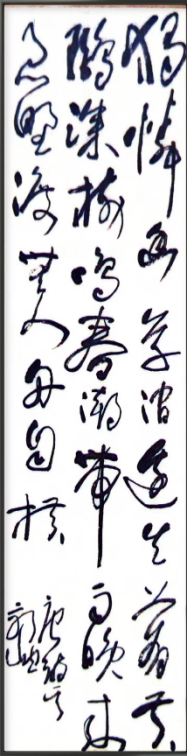 獨憐幽草澗邊生上有黃
鸝深樹鳴春潮帶雨晚來
急野渡無人舟自橫